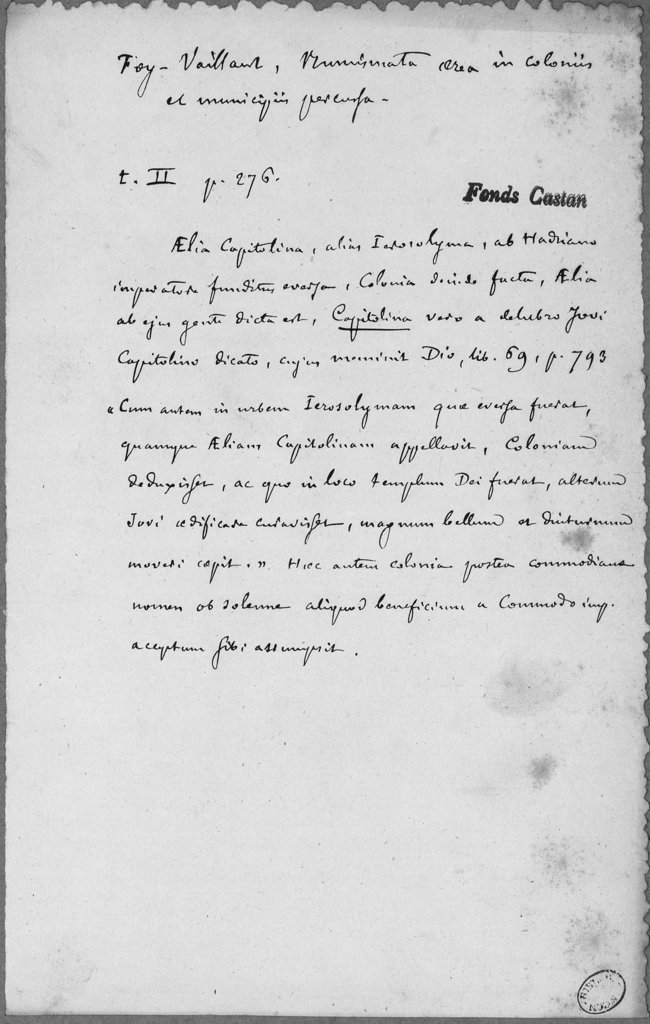 Foy-Vaillant, Numismata ærea in coloniis
et municipiis percussa -
t. II p. 276.
Fonds Castan
Ælia Capitolina, alias Ierosolyma, ab Hadriano
imperatore funditus eversa, Colonia deinde facta, Ælia
ab ejus gente dicta est, Capitolina vero a delubro Jovi
Capitolino dicato, cujus meminit Dio, lib. 69, p. 793
« Cum autem in urbem Ierosolymam quæ eversa fuerat,
quamque Æliam Capitolinam appellavit, Coloniam
deduxisset, ac quo in loco templum Dei fuerat, alterum
Jovi ædificare curavisset, magnum bellum et diuturnum
moveri cœpit. » Hæc autem colonia postea commodianæ
nomen ob solemne aliquod beneficium a Commodo imp.
acceptum sibi assumpsit.